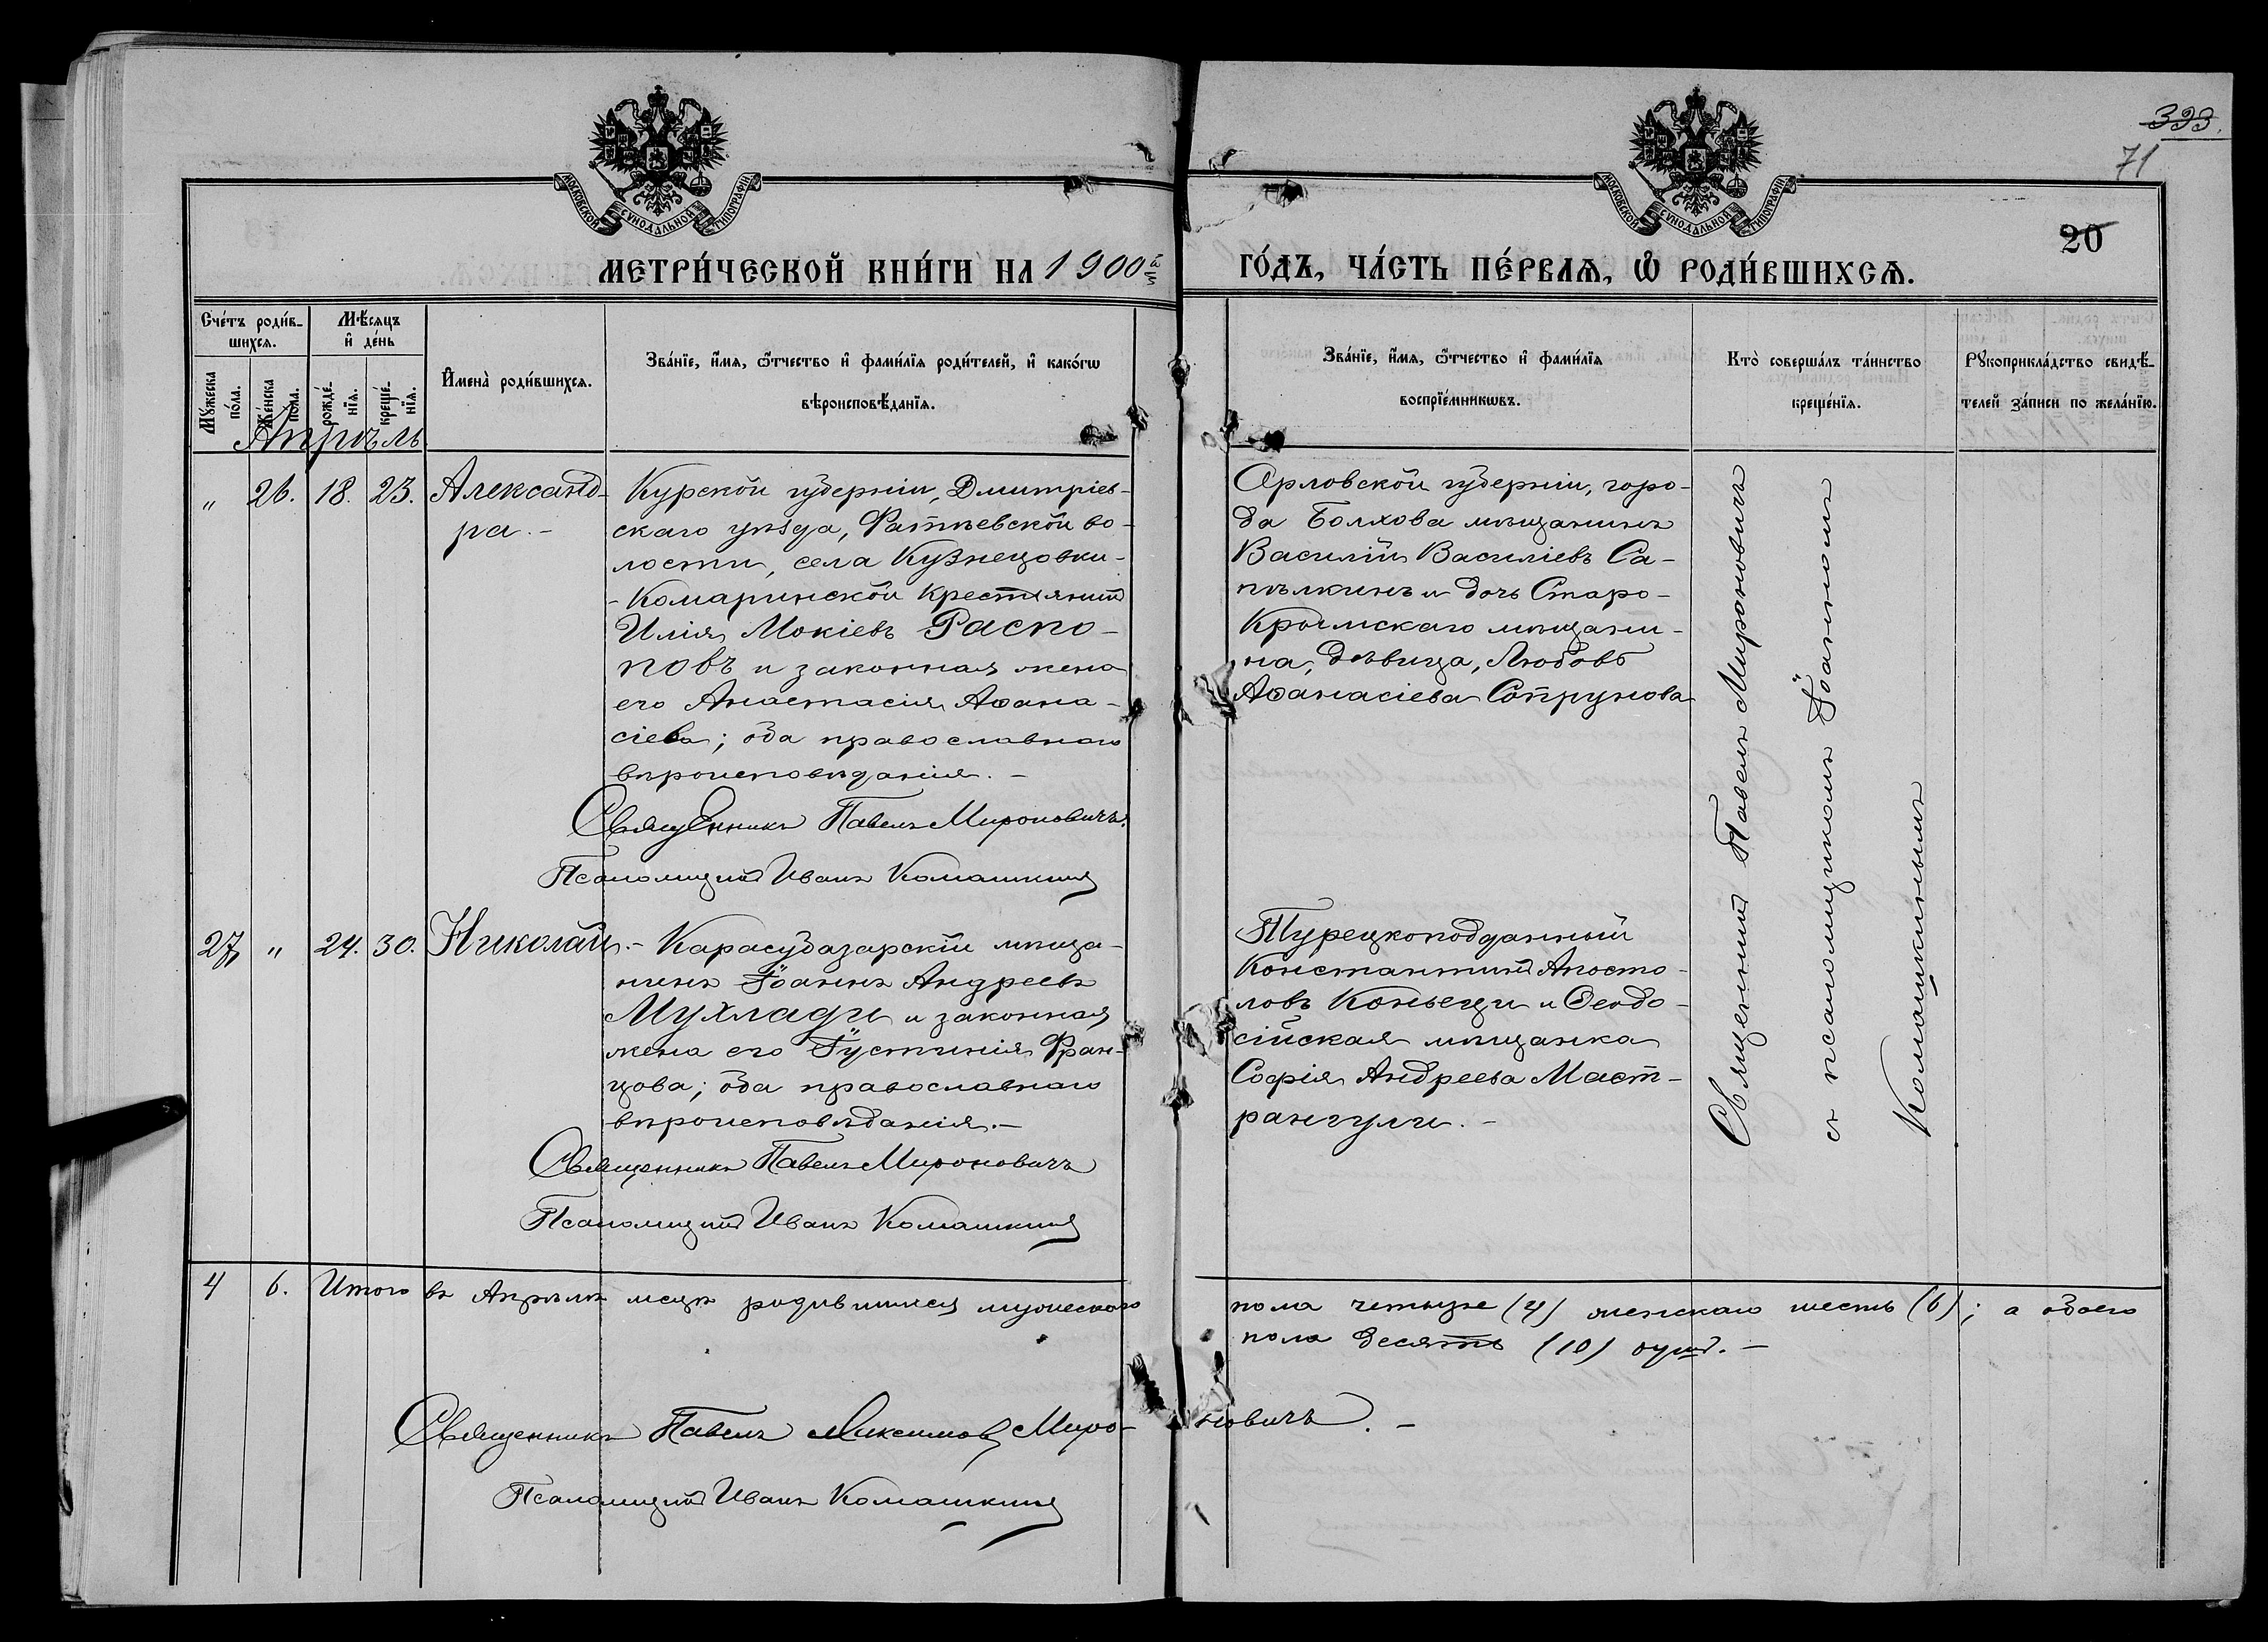 393.
71
20
МОСКОВСКОЙ СУНОДАЛЬНОЙ ТИПОГРАФІИ
МОСКОВСКОЙ СУНОДАЛЬНОЙ ТИПОГРАФІИ
МЕТРИ́ЧЕСКОЙ КНИ́ГИ НА 1900ый
ГО́ДЪ, ЧА́СТЬ ПЕ́РВАѦ, Ѡ҆ РОДИ́ВШИХСѦ.
Сче́тъ роди́в-
шихсѧ.
Мꙋ́жеска
по́ла.
Же́нска
по́ла.
Мѣ́сѧцъ
и҆ де́нь
рожде́-
нїѧ.
креще́-
нїѧ.
И҆мена̀ роди́вшихсѧ.
Зва́нїе, и҆́мѧ, ѻ҆́тчество и҆ фами́лїѧ роди́телей, и҆ како́гѡ
вѣроисповѣ́данїѧ.
Зва́нїе, и҆́мѧ, ѻ҆́тчество и҆ фами́лїѧ
воспрїе́мникѡвъ.
Кто̀ соверша́лъ та́инство
креще́нїѧ.
Рꙋкоприкла́дство свидѣ́-
телей за́писи по жела́нїю.
Апрѣль
„ 26. 18. 23. Александ-
ра. -
Курской губерніи, Дмитріев-
скаго уѣзда, Фатѣевской во-
лости, села Кузнецовки-
- Комаринской Крестянинъ
Илія Мокіевъ Распо-
повъ и законная жена
его Анастасія Аѳана-
сіева; оба православнаго
вѣроисповѣданія. -
Священникъ Павелъ Мироновичъ.
Псаломщикъ Иванъ Комашкинъ
Орловской губерніи, горо-
да Болхова мѣщанинъ
Василій Василіевъ Са-
пѣлкинъ и дочь Старо-
Крымскаго мѣщани-
на, дѣвица, Любовь
Аѳанасіева Сопрунова
Священникъ Павелъ Мироновичъ
съ псаломщикомъ Іоанномъ
Комашкинымъ
27, „ 24. 30. Николай. -
Карасубазарскій мѣща-
нинъ Іоаннъ Андреевъ
Мухлади и законная
жена его Іустинія Фран-
цова; оба православнаго
вѣроисповѣданія. -
Священникъ Павелъ Мироновичъ
Псаломщикъ Иванъ Комашкинъ
Турецкоподданный
Константинъ Апосто-
ловъ Коньеци и Ѳеодо-
сійская мѣщанка
Софія Андреева Маст-
рангули. -
4 6. Итого въ Апрѣлѣ мсцѣ родившихся мужескаго
пола четыре (4) женскаго шесть (6); а обоего
пола десять (10) душъ. -
Священникъ Павелъ Максимовъ Миро-
новичъ. -
Псаломщикъ Иванъ Комашкинъ